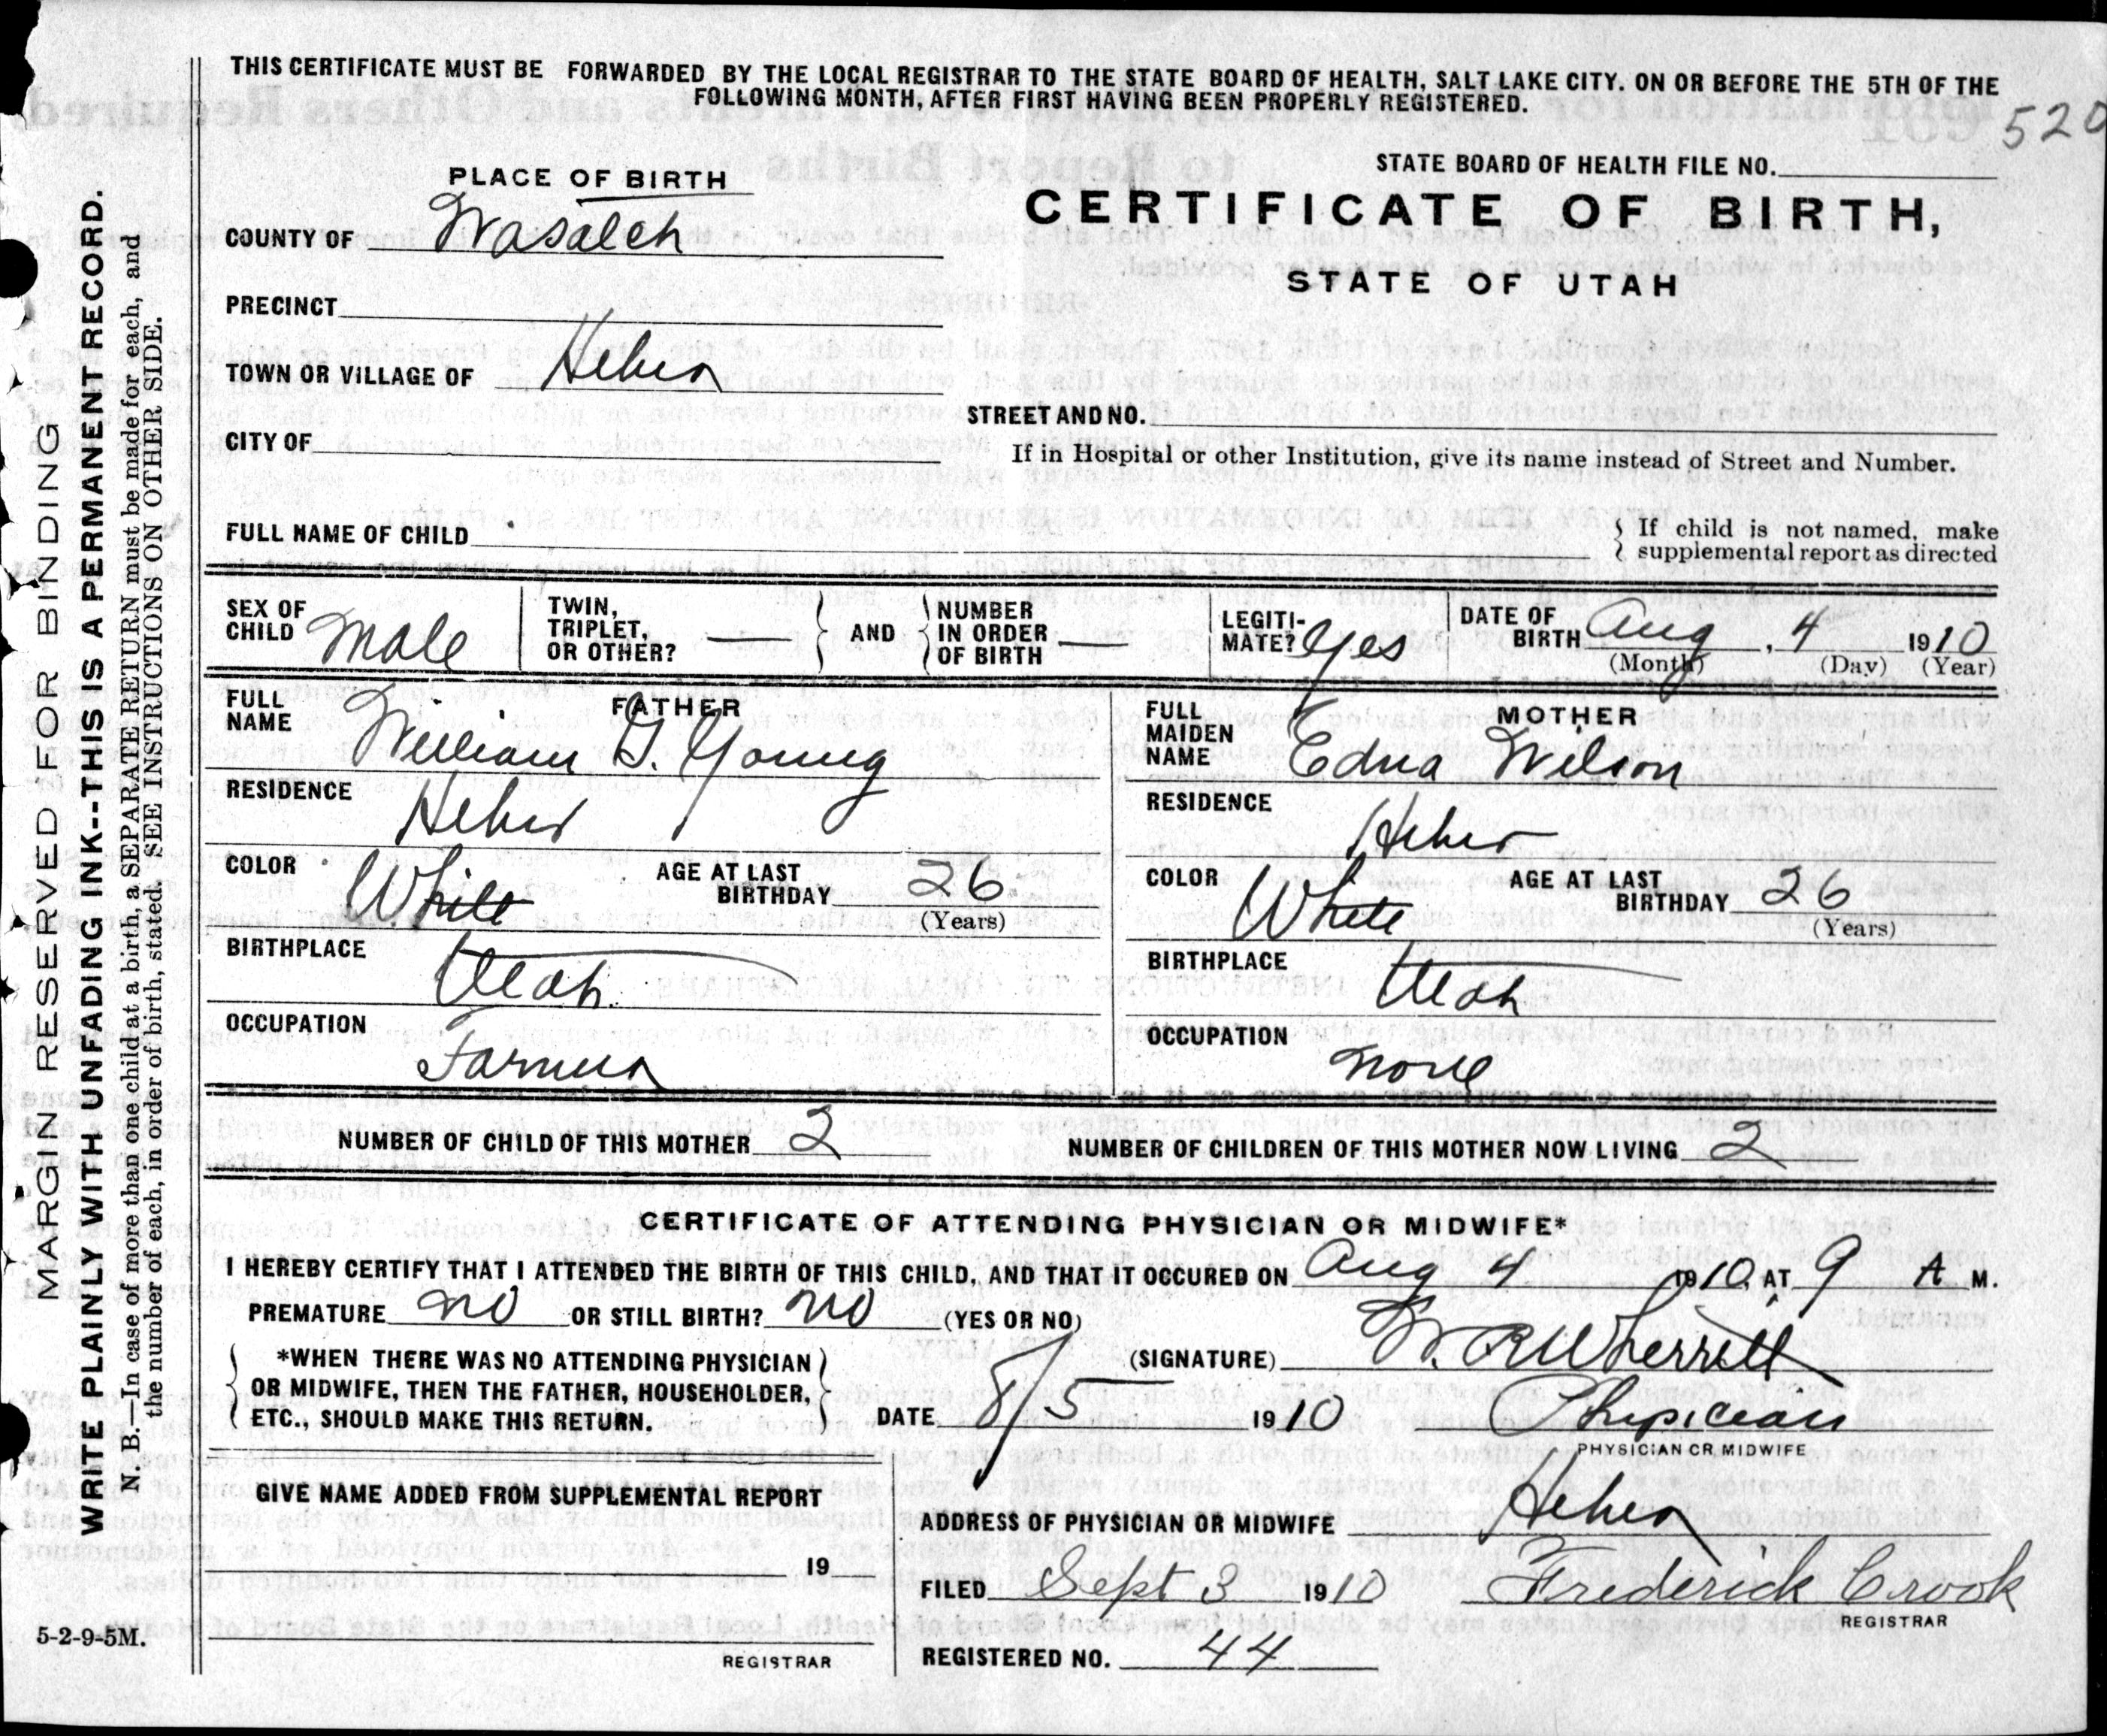 THIS CERTIFICATE MUST BE FORWARDED BY THE LOCAL REGISTRAR TO THE STATE BOARD OF HEALTH, SALT LAKE CITY. ON OR BEFORE THE 5TH OF THE
FOLLOWING MONTH, AFTER FIRST HAVING BEEN PROPERLY REGISTERED.
520
STATE BOARD OF HEALTH FILE NO.
PLACE OF BIRTH
CERTIFICATE OF BIRTH,
STATE OF UTAH
COUNTY OF Wasatch
PRECINCT
TOWN OR VILLAGE OF Heber
STREET AND NO.
CITY OF
If in Hospital or other Institution, give its name instead of Street and Number.
FULL NAME OF CHILD
If child is not named, make
supplemental report as directed
SEX OF CHILD Male
TWIN, TRIPLET, OR OTHER? —
AND
NUMBER IN ORDER OF BIRTH —
LEGITIMATE? Yes
DATE OF BIRTH Aug, 4 1910
(Month) (Day) (Year)
FATHER
FULL NAME William G. Young
RESIDENCE Heber
COLOR White
AGE AT LAST BIRTHDAY 26
(Years)
BIRTHPLACE Utah
OCCUPATION Farmer
MOTHER
FULL MAIDEN NAME Edna Wilson
RESIDENCE Heber
COLOR White
AGE AT LAST BIRTHDAY 26
(Years)
BIRTHPLACE Utah
OCCUPATION None
NUMBER OF CHILD OF THIS MOTHER 2
NUMBER OF CHILDREN OF THIS MOTHER NOW LIVING 2
CERTIFICATE OF ATTENDING PHYSICIAN OR MIDWIFE*
I HEREBY CERTIFY THAT I ATTENDED THE BIRTH OF THIS CHILD, AND THAT IT OCCURED ON Aug 4 1910. AT 9 A M.
PREMATURE No OR STILL BIRTH? No (YES OR NO)
*WHEN THERE WAS NO ATTENDING PHYSICIAN
OR MIDWIFE, THEN THE FATHER, HOUSEHOLDER,
ETC., SHOULD MAKE THIS RETURN.
(SIGNATURE) W. R Wherritt
DATE 8/5 1910 Physician
PHYSICIAN OR MIDWIFE
GIVE NAME ADDED FROM SUPPLEMENTAL REPORT
19
REGISTRAR
ADDRESS OF PHYSICIAN OR MIDWIFE Heber
FILED Sept 3 1910 Frederick Crook
REGISTRAR
REGISTERED NO. 44
5-2-9-5M.
MARGIN RESERVED FOR BINDING
WRITE PLAINLY WITH UNFADING INK--THIS IS A PERMANENT RECORD.
N. B.—In case of more than one child at a birth, a SEPARATE RETURN must be made for each, and
the number of each, in order of birth, stated. SEE INSTRUCTIONS ON OTHER SIDE.